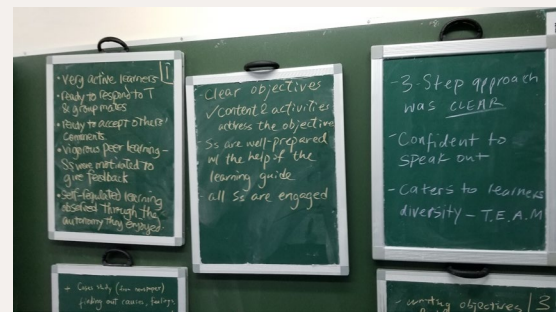 • Very active learners
• ready to respond to T
& group mates
• ready to accept others'
comments
• Vigorous peer learning -
Ss were motivated to
give feedback
• Self-regulated learning
observed through the
autonomy they enjoyed.
- Clear objectives
✓ content & activities
address the objective
- Ss are well-prepared
w/ the help of the
learning guide
- all Ss are engaged
- 3-Step approach
was CLEAR
- Confident to
speak out
- Caters to learners
diversity - T.E.A.M
finding out causes, feelings
- writing objectives 3